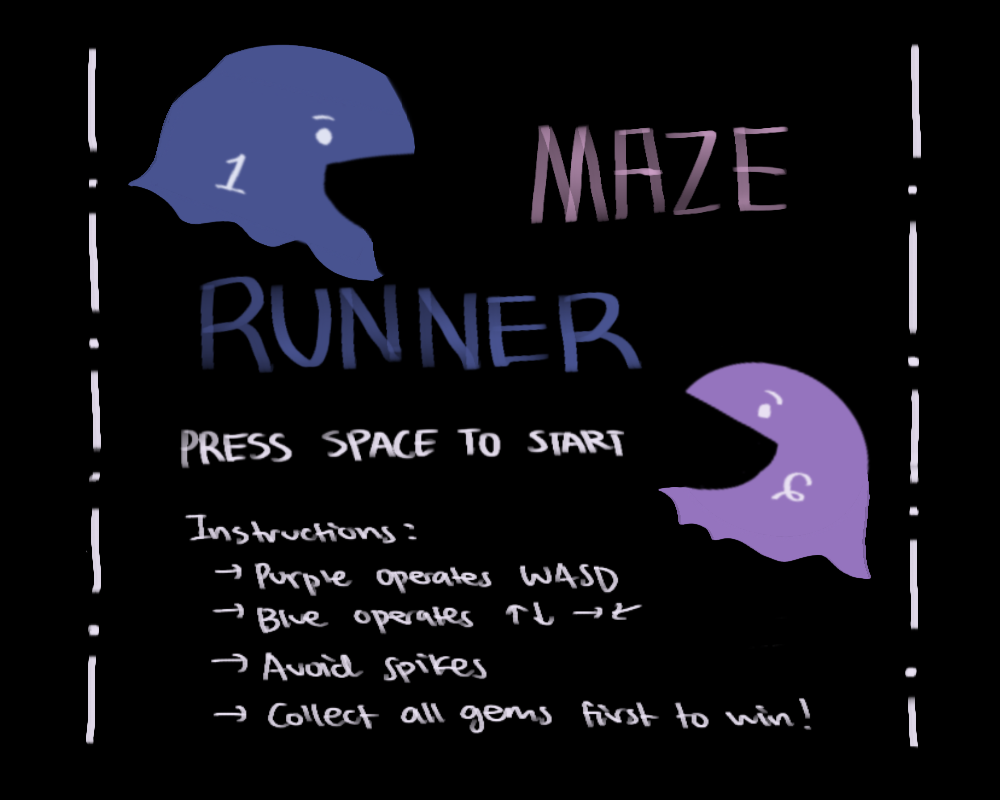 1
MAZE
RUNNER
PRESS SPACE TO START
6
Instructions:
→ Purple operates WASD
→ Blue operates ↑↓ →←
→ Avoid spikes
→ Collect all gems first to win!